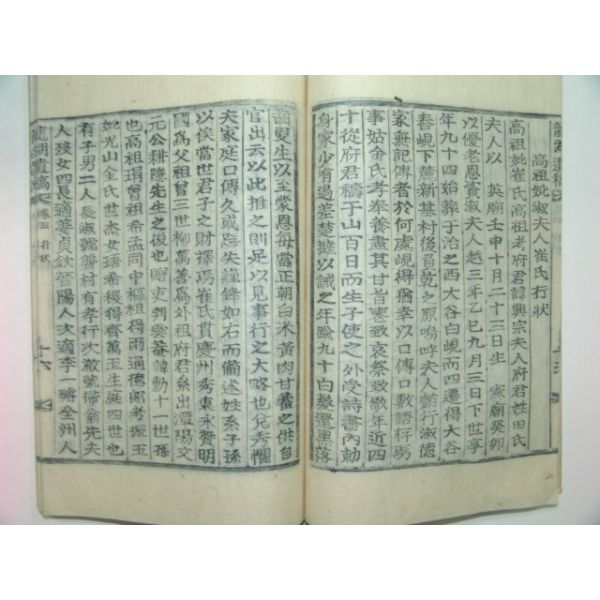 高祖妣淑夫人崔氏行狀
高祖妣崔氏高祖考府君諱興宗夫人府君姓田氏
夫人以 英廟壬申十月二十三日生 憲廟癸卯
以優老恩資淑夫人越三年乙巳九月三日下世享
年九十四始葬于治之西大谷白峴而四遷得大谷
春峴下麓新基村後負艮之原嗚呼夫人懿行淑德
家無記傳者於何處峴得猶幸以口傳口數語稱爲
事姑金氏孝奉養盡其甘旨喪致哀祭致敬年近四
十從府君禱于山百日而生子使之外受詩書內勅
身家少有過差楚撻以誡之年踰九十白髮還黑落
齒更生以至蒙恩每當正朝白米黃肉甘藿之供自
官出云以此推之則足以見事行之大略也兌秀懼
夫家庭口傳久或忘失謹錄如右而備述姓系子孫
以俟當世君子之財擇焉崔氏貫慶州秀東永贊明
國爲父祖曾三世柳萬善爲外祖府君系出潭陽文
元公耕隱先生之後也贈吏判雲菴諱勳十一世孫
也高祖琯曾祖希孟同中樞祖得雨通德郞考振玉
妣光山金氏世杰女琯希稷得齊萬玉生庭四世也
有子男二人長 號聾村有孝行次 號掃翁先夫
人歿女四長適蔡貞欽晉陽人次適李一 全州人
龍湖遺稿 卷三 行狀 十六